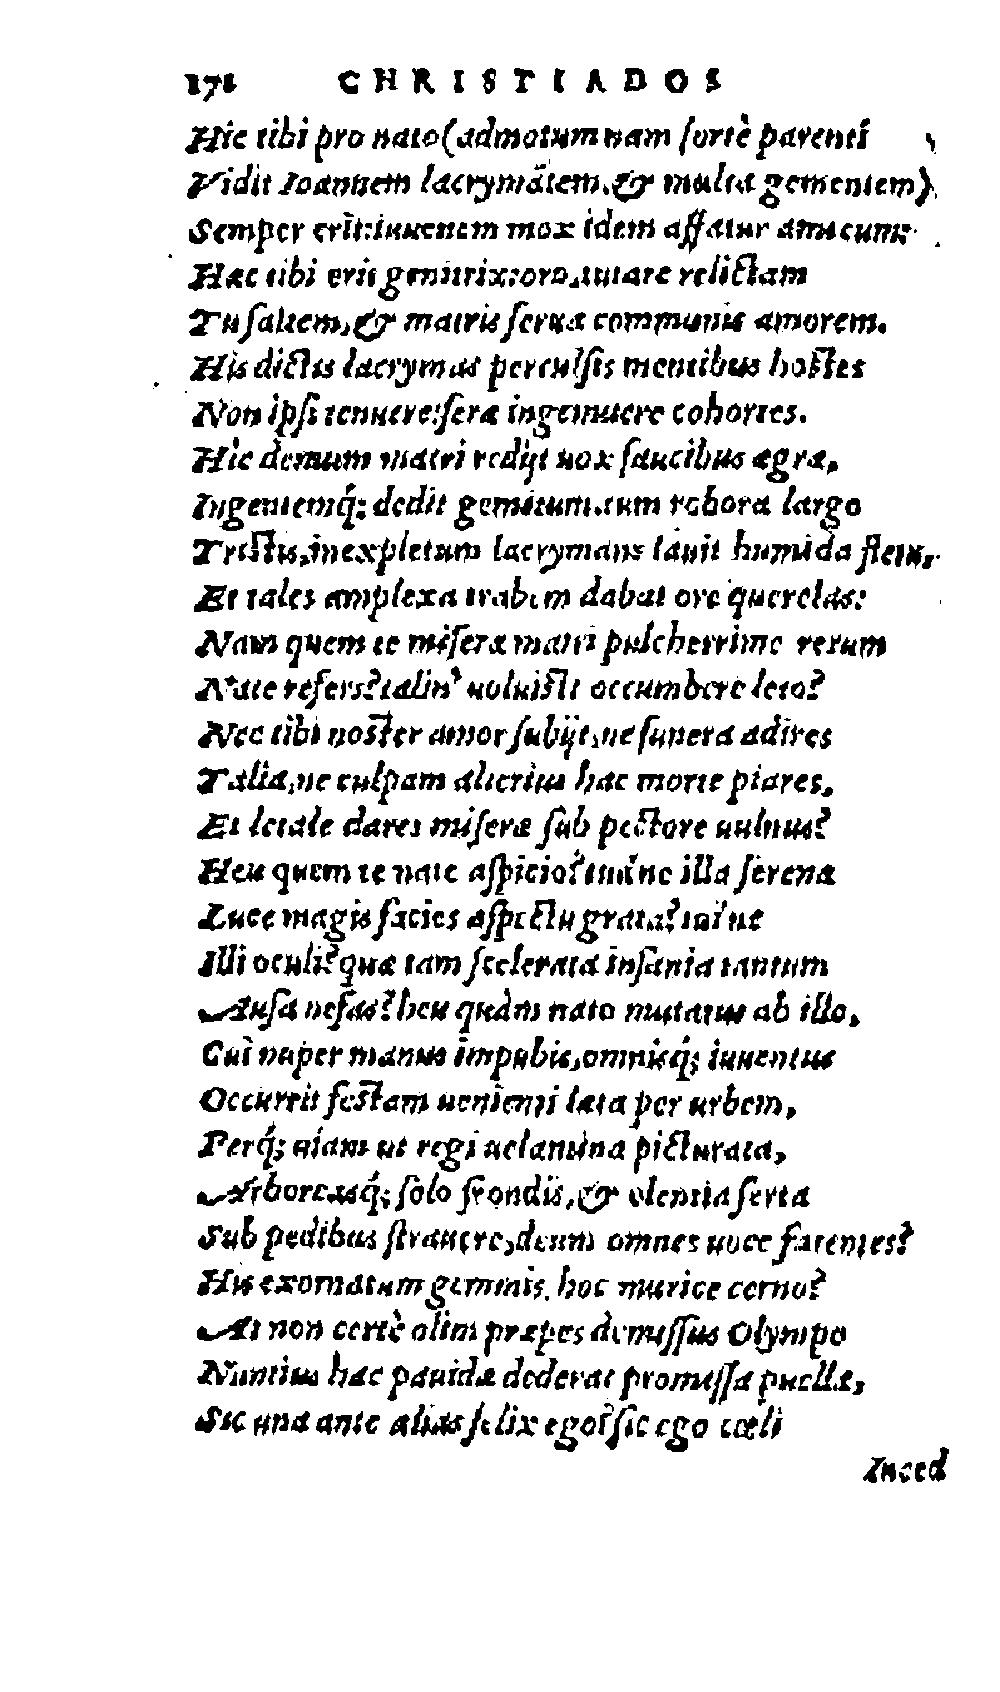 171 CHRISTIADOS
Hic tibi pro nato (admotum nam fortè parenti
Vidit Ioannem lacrymātem, & multa gementem)
Semper erit: iuuenem mox idem affatur amicum:
Hæc tibi erit genitrix: oro, tutare relictam
Tu saltem, & matris serua communis amorem.
His dictis lacrymas perculsis mentibus hostes
Non ipsi tenuere: feræ ingemuere cohortes.
Hìc demum matri redijt uox faucibus ægra,
Ingentemq́; dedit gemitum, tum robora largo
Tristis, inexpletum lacrymans lauit humida fletu,
Et tales amplexa trabem dabat ore querelas:
Nam quem te miseræ matri pulcherrime rerum
Nate refers? talin' uoluisti occumbere leto?
Nec tibi noster amor subijt, ne funera adires
Talia, ne culpam alterius hac morte piares,
Et letale dares miseræ sub pectore uulnus?
Heu quem te nate aspicio? tuáne illa serena
Luce magis facies aspectu grata? tuíne
Illi oculi? quæ tam scelerata insania tantum
Ausa nefas? heu quàm nato mutatus ab illo,
Cui nuper manus impubis, omnisq́; iuuentus
Occurrit festam uenienti læta per urbem,
Perq́; uiam ut regi uelamina picturata,
Arboreasq́; solo frondis, & olentia serta
Sub pedibus strauere, deum omnes uoce fatentes?
His exornatum gemmis, hoc murice cerno?
At non certè olim præpes demissus Olympo
Nuntius hæc pauidæ dederat promissa puellæ,
Sic una ante alias felix ego? sic ego cœli
Inced